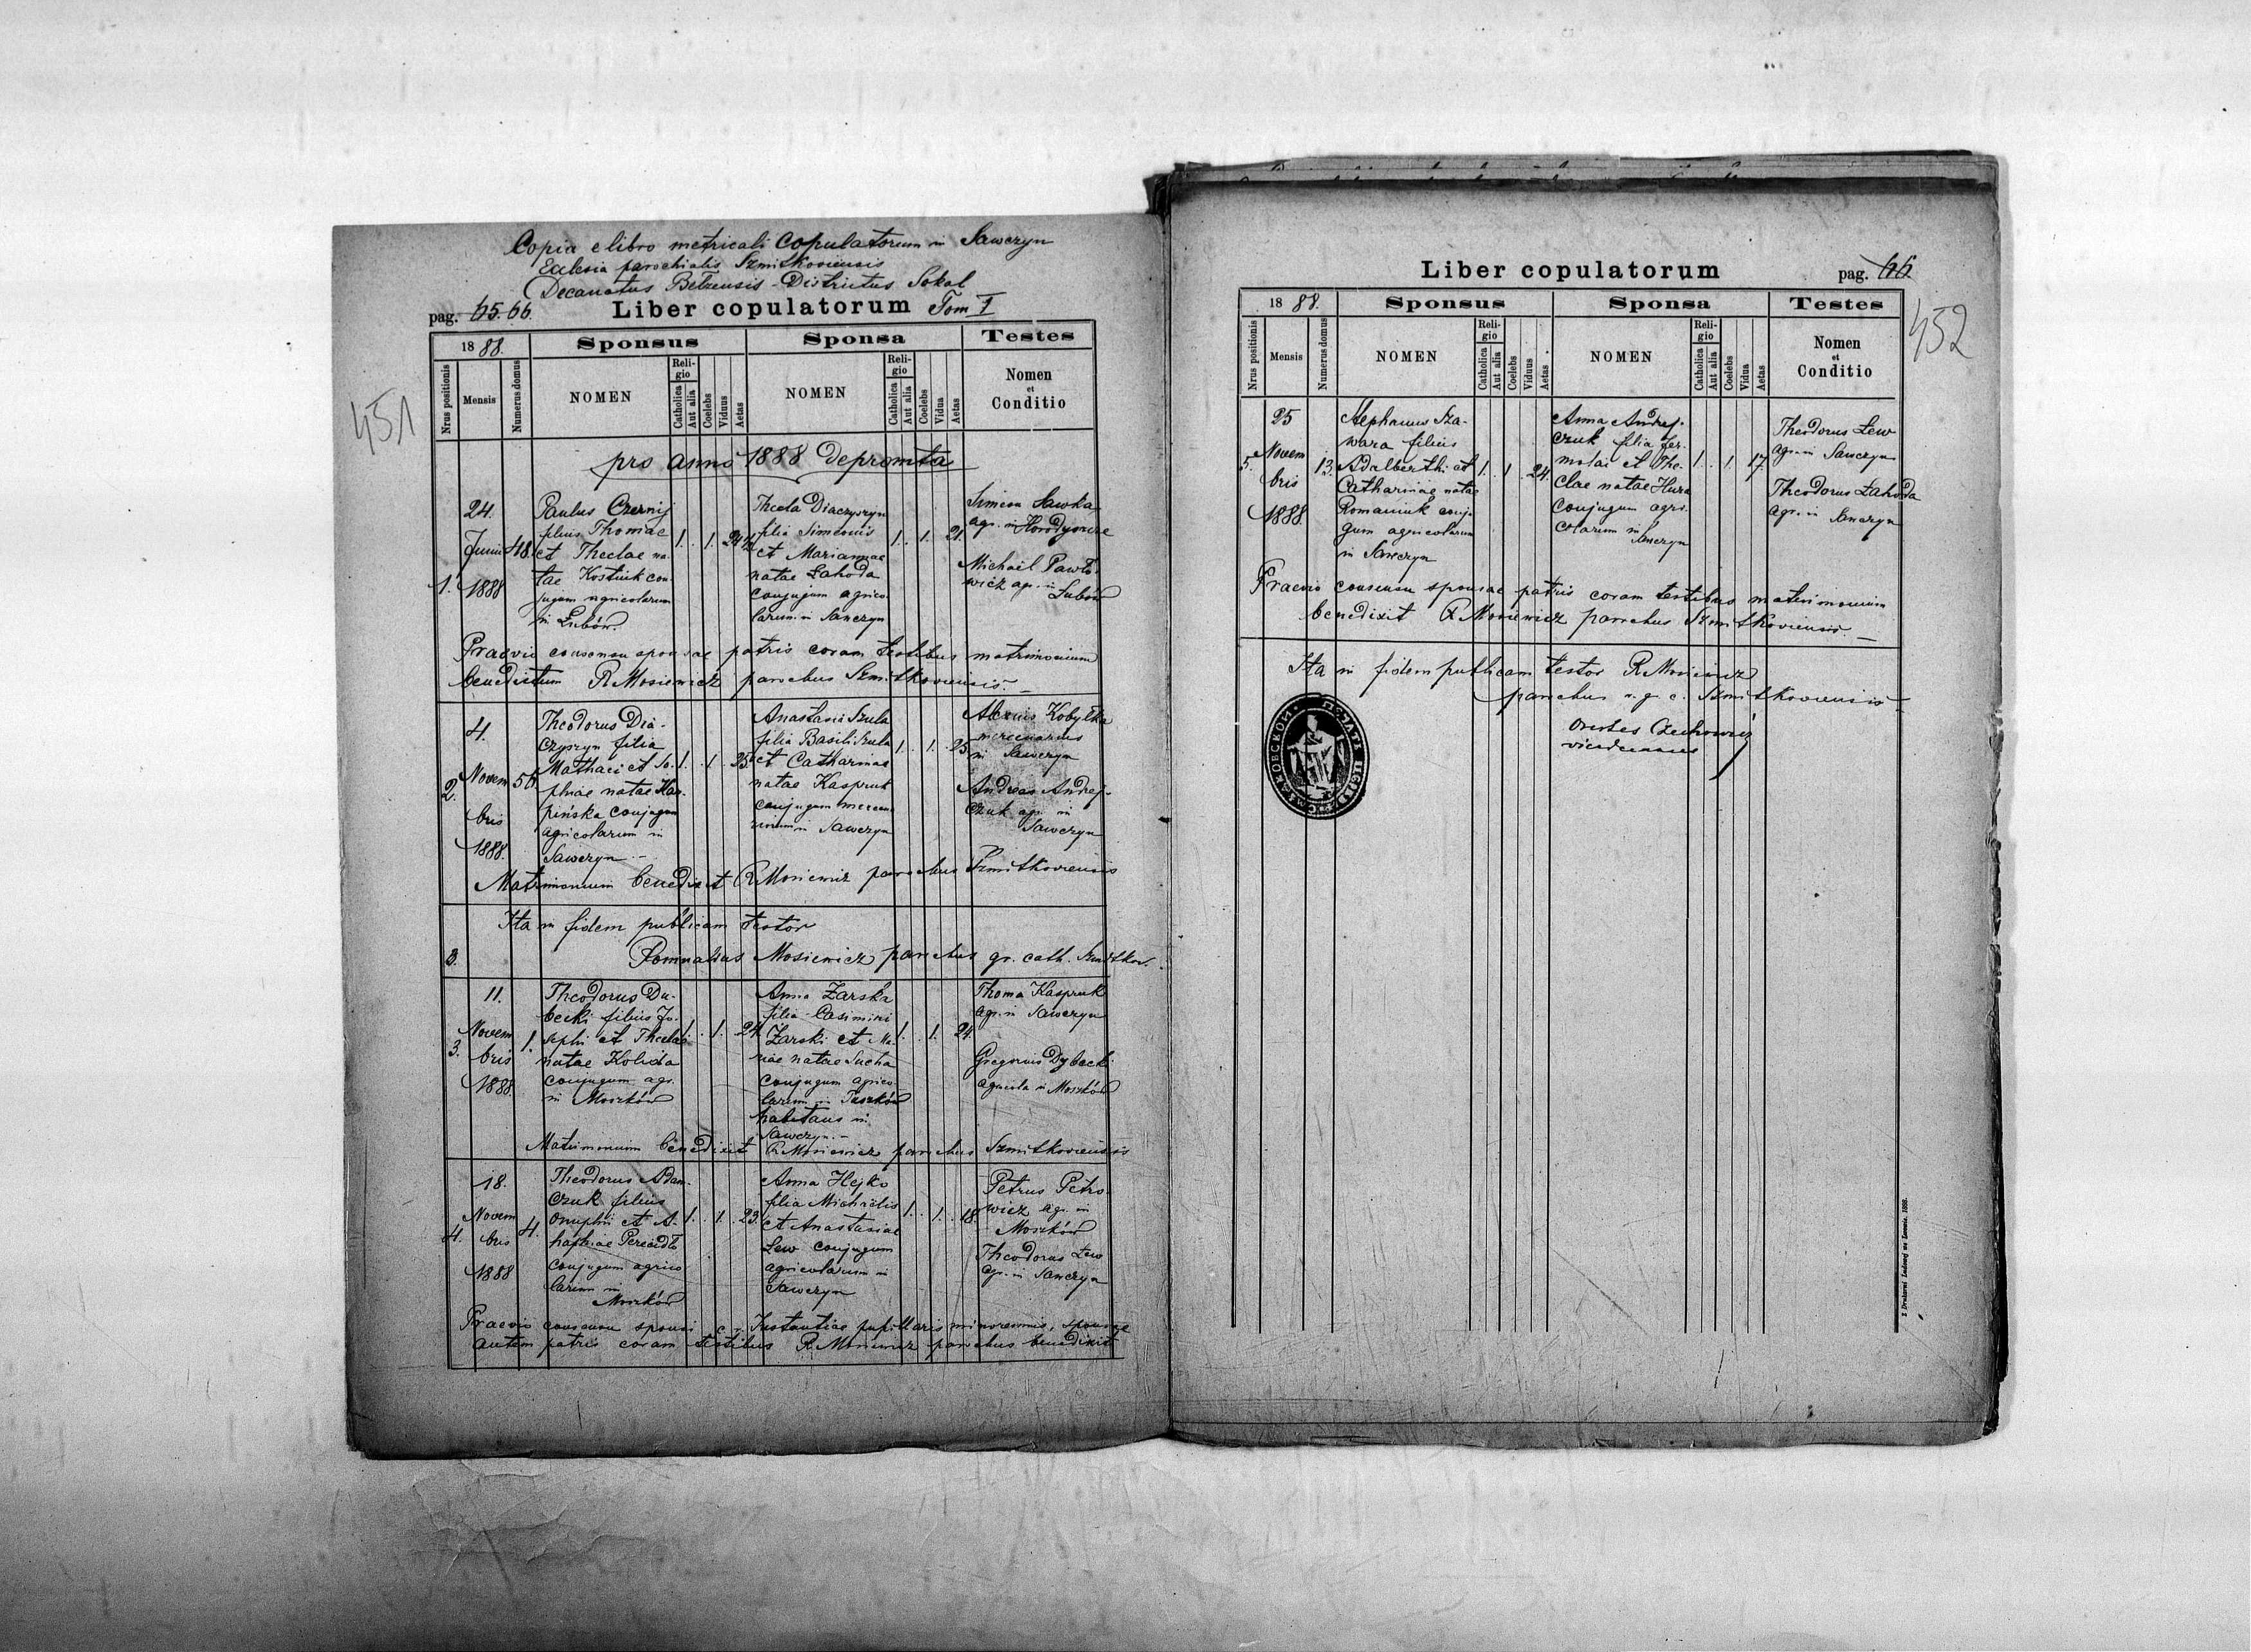 Copia e libro metricali Copulatorum in Sawczyn
Eclesia parochialis Szmitkoviensis
Decanatus Belzensis Districtus Sokal
pag. 65.66. Liber copulatorum Tom I
451
18 88. Sponsus Sponsa Testes
Nrus positionis Mensis Numerus domus NOMEN Religio Catholica Aut alia Coelebs Viduus Aetas NOMEN Religio Catholica Aut alia Coelebs Vidua Aetas Nomen et Conditio
pro anno 1888 depromta
1. 24. Junii 1888 48.
Paulus Czernij
filius Thomae
et Theclae na-
tae Kostiuk con-
jugum agricolarum
in Łubów.
1. . 1. 24 ½
Thecla Diaczyszyn
filia Simeonis
et Mariannae
natae Łahoda
conjugum agrico-
larum in Sawczyn
1. . 1. 21.
Simeon Sawka
agr. in Horodyszcze
Michael Pawło-
wicz agr. in
Łubów
Praevio consensu sponsae patris coram testibus matrimonium
benedictum R Mosiewicz parochus Szmitkoviensis. —
2. 4. Novem bris 1888. 50
Theodorus Dia-
czyszyn filia
Mathaei et So-
phiae natae Kar-
pińska conjugum
agricolarum in
Sawczyn —
1. . 1 25
Anastasia Szula
filia Basili Szula
et Catharinae
natae Kaspruk
conjugum mercena
riorum in Sawczyn
1. . 1. 25
Alexius Kobyłka
mercenarius
in Sawczyn
Andreas Andrej-
czuk agr. in
Sawczyn
Matrimonium benedixit R Mosiewicz parochus Szmitkoviensis
Ita in fidem publicam testor
3. Romualdus Mosiewicz parochus gr. cath. Szmitkow.
3. 11. Novem bris 1888. 1.
Theodorus Du-
becki filius Jo-
sephi et Theclae
natae Kolida
conjugum agr.
in Moszków
1. . 1. 24
Anna Żarska
filia Casimiri
Żarski et Ma-
riae natae Sucha
conjugum agrico
larum in Tuszków
habitans in
Sawczyn. —
1. . 1. 24.
Thoma Kaspruk
agr. in Sawczyn
Gregorius Dybecki
agricola in Moszków
Matrimonium benedixit R Mosiewicz parochus Szmitkoviensis
4. 18. Novem bris 1888 4.
Theodorus Adam-
czuk filius
Onuphri et A-
haphiae
conjugum agrico
larum in
Moszków
1. . 1. 23.
Anna Hejko
filia Michaelis
et Anastasiae
Lew conjugum
agricolarum in
Sawczyn
1. . 1. 18.
Petrus Petro-
wicz agr. in
Moszków
Theodorus Lew
agr. in Sawczyn
Praevio consensu sponsi c. r. Instantiae pupillaris minorennis, sponsae
autem patris coram testibus R Mosiewicz parochus benedixit
Liber copulatorum pag. 66
452
18 88. Sponsus Sponsa Testes
Nrus positionis Mensis Numerus domus NOMEN Religio Catholica Aut alia Coelebs Viduus Aetas NOMEN Religio Catholica Aut alia Coelebs Vidua Aetas Nomen et Conditio
5. 25 Novem bris 1888 13.
Stephanus Sza-
wara filius
Adalberthi et
Catharinae natae
Romaniuk conju-
gum agricolarum
in Sawczyn
1. . 1 24.
Anna Andrej-
czuk filia Jer-
molai et The-
clae natae Hura
conjugum agri-
colarum in
Sawczyn
1. . 1. 17
Theodorus Lew
agr. in Sawczyn
Theodorus Łahoda
agr. in Sawczyn
Praevio consensu sponsae patris coram testibus matrimonium
benedixit R Mosiewicz parochus Szmitkoviensis. —
Ita in fidem publicam testor R Mosiewicz
parochus r. g. c. Szmitkoviensis —
Orestes Czechowicz
vicedecanus
Z Drukarni Ludowej we Lwowie. 1888.